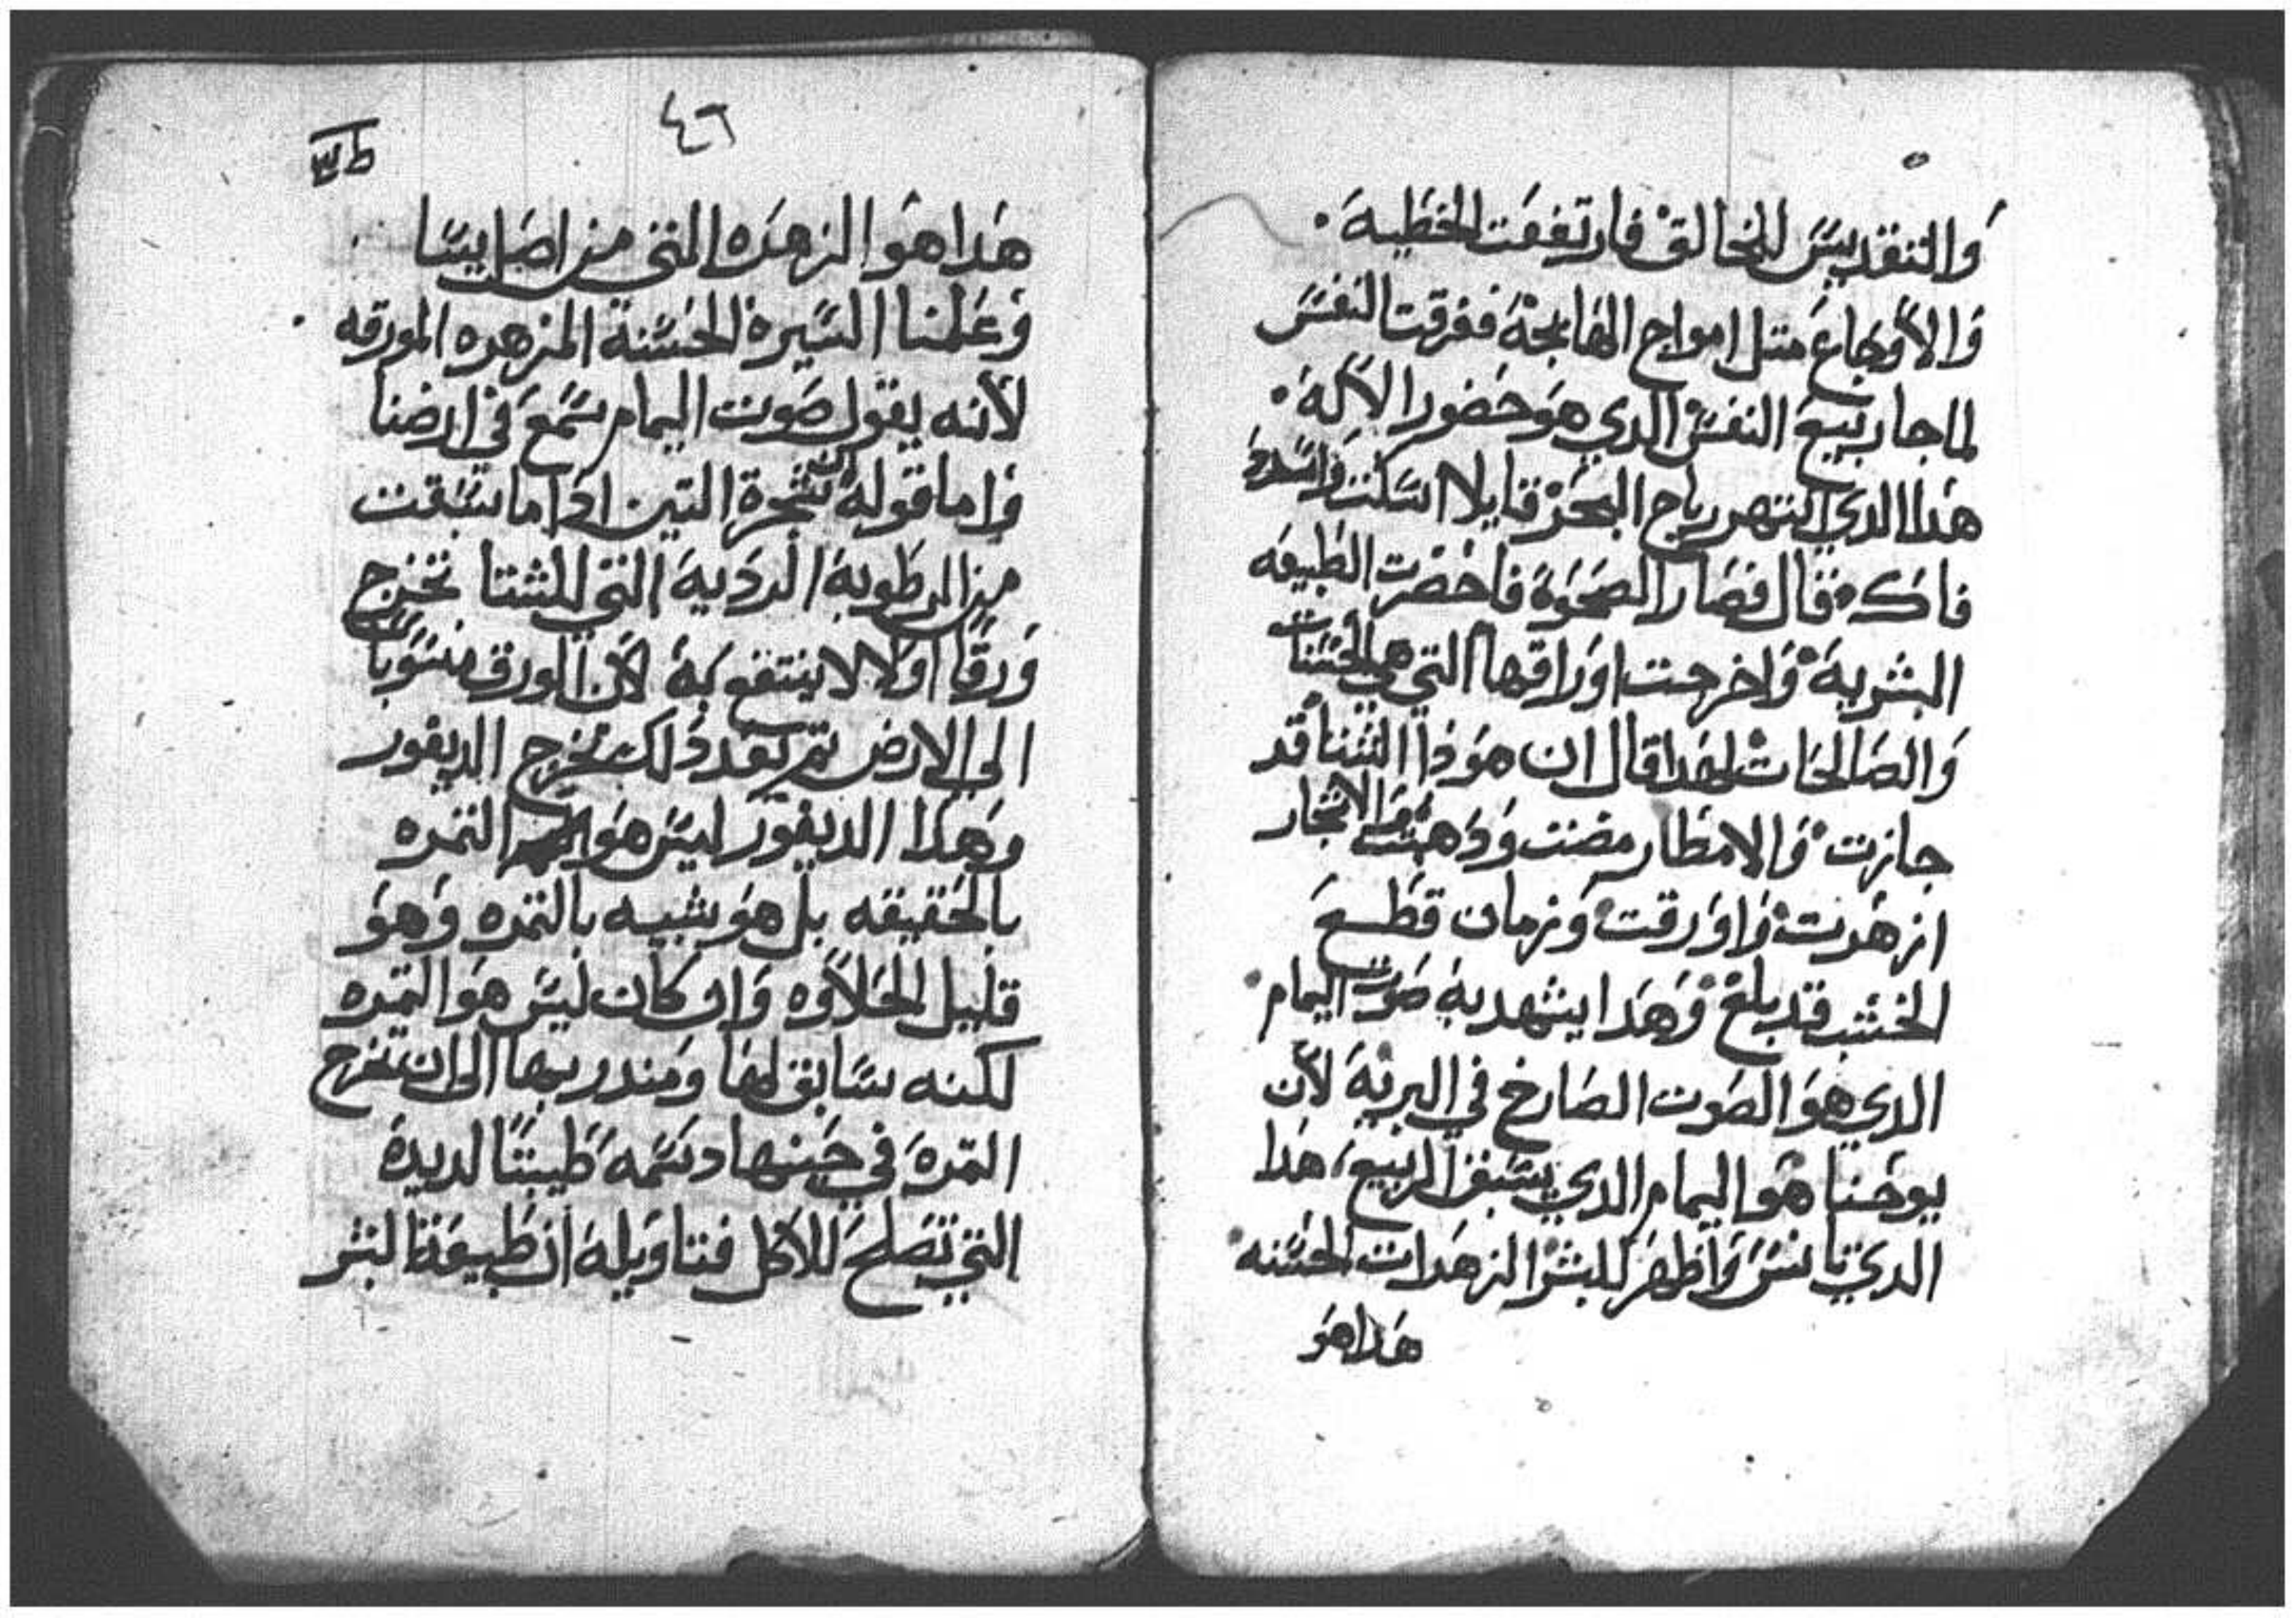 والتقديس للخالق فارتفعت الخطية
والاوجاع متل امواج الهايجة ففرقت النفس
لما جا ربيع النفس الدي هو حضور الاله
هدا الدي انتهر رياح البحر قايلا اسكت واستد
فاك فقال فصار الصحوة فاخضرت الطبيعه
البشرية واخرجت اوراقها التي هي الحسنات
والصالحات لهدا قال ان هودا الشتا قد
جازت والامطار مضت ودهبت والاشجار
ازهرت واورقت وزمان قطع
الخشب قد بلغ وهدا يشهد به صوت اليمام
الدي هو الصوت الصارخ في البرية لان
يوحنا هو اليمام الدي يسبق الربيع هدا
الدي تانس واظهر للبشر الزهرات الحسنه
هدا هو
٤٦
هدا هو الزهره التي من اصل يسا
وعلمنا السيرة الحسنة المزهره المورقه
لانه يقول صوت اليمام سمع في ارضنا
واما قوله شجرة التين ادا ما سبقت
من الرطوبة الردية التي للشتا تخرج
ورقا اولا لا ينتفع به لان الورق منسوبا
الى الارض تم بعد دلك تخرج الديفور
وهدا الديفور ليس هو التمره
بالحقيقه بل هو شبيه بالتمره وهو
قليل الحلاوه وان كان ليس هو التمره
لكنه سابق لها ومندر بها الى ان تخرج
التمرة في حينها دسمه طيبتا لديدة
التي تصلح للاكل فتاويله ان طبيعة البشر